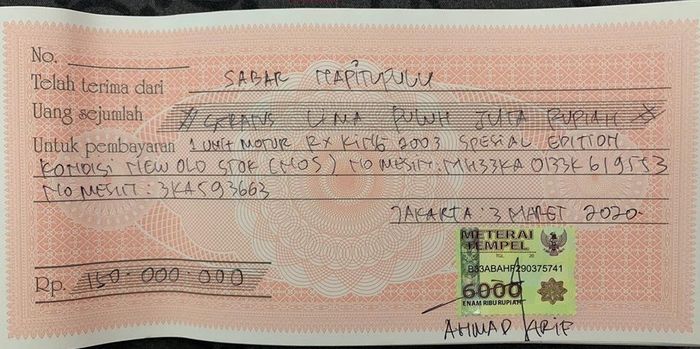 No.
Telah terima dari SABAR NAPITUPULU
Uang sejumlah // SERATUS LIMA PULUH JUTA RUPIAH //
Untuk pembayaran 1 UNIT MOTOR RX KING 2003 SPESIAL EDITION
KONDISI NEW OLD STOK (NOS) NO MESIN: MH33KA0133K619553
NO MESIN : 3KA593663
JAKARTA 3 MARET 2020
METERAI
TEMPEL
TGL 20
B53ABAHF290375741
6000
ENAM RIBU RUPIAH
Rp. 150.000.000
AHMAD ARIF